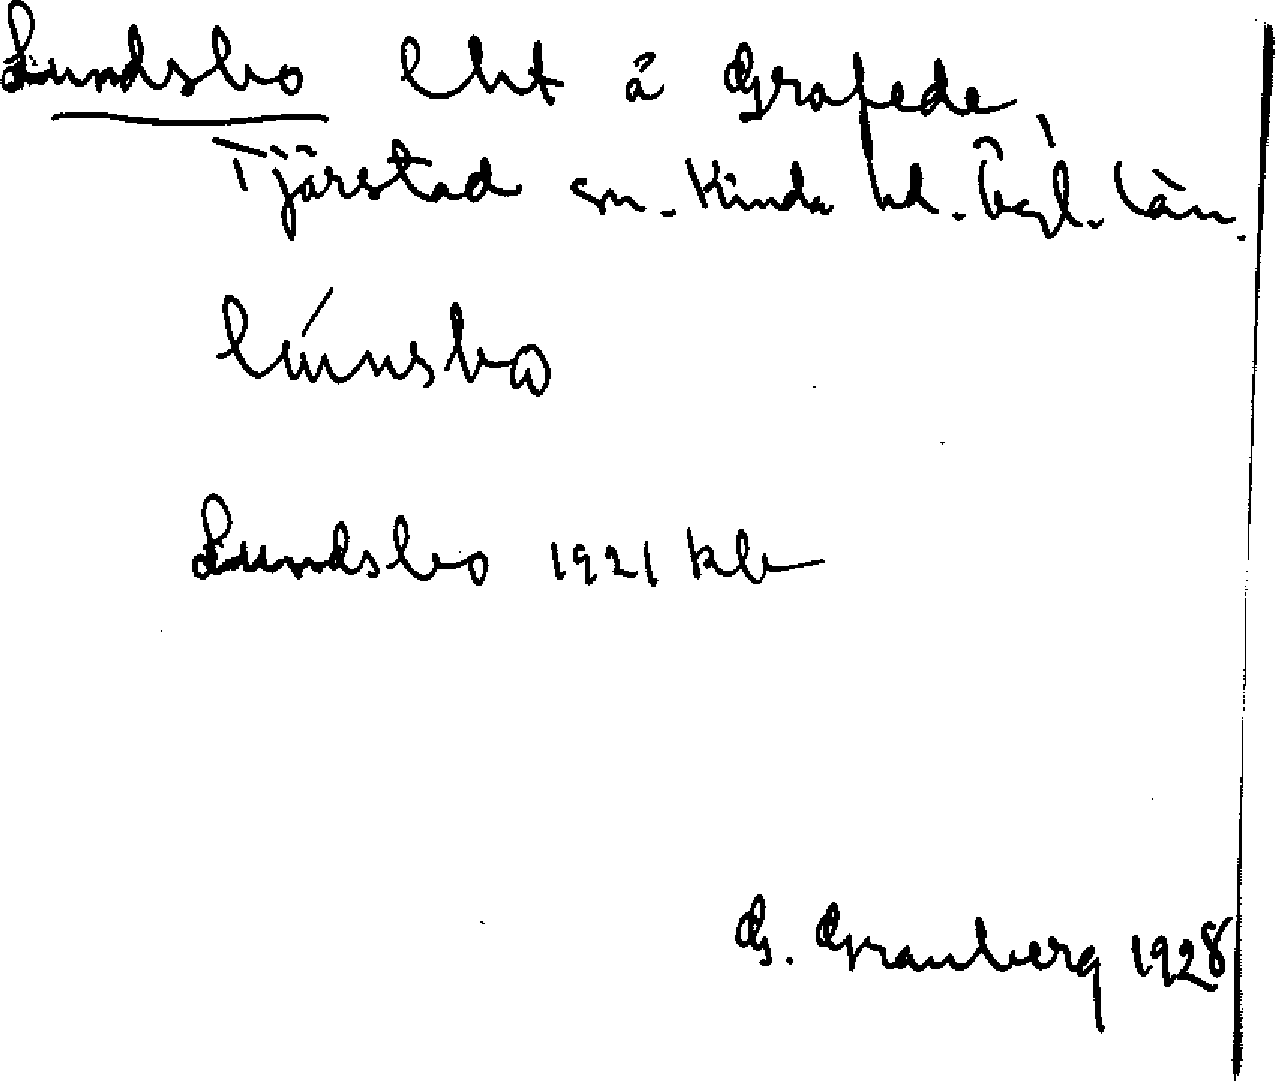 Lundsbo lht å Grafsede,
Tjärstad sn. Kinda hd. Ögl. län.
lúnsbo
Lundsbo 1921 kb
G. Granberg 1928